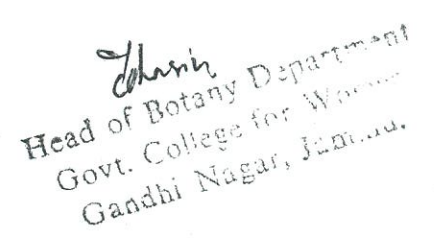 Head of Botany Department
Govt. College for
Gandhi Nagar,